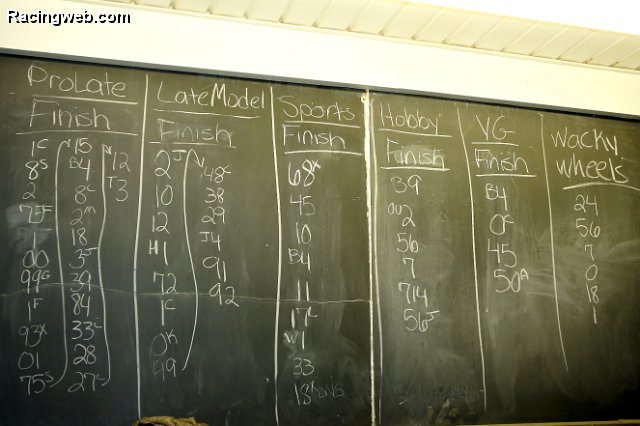 Racingweb.com
ProLate
Finish
1C
8S
2
71
00
99G
1F
93X
01
75S
15
B4
8C
2M
18
35
39
84
33L
28
27L
12
T3
Late Model
Finish
2J
10
12
H1
72
1C
0K
99
48C
38
29
J4
91
92
Sports
Finish
68X
45
10
B4
11
17L
1
33
18X DNS
Hobby
Finish
39
OU2
56
7
714
56J
VG
Finish
B4
0C
45
50A
Wacky
Wheels
24
56
7
0
18
1